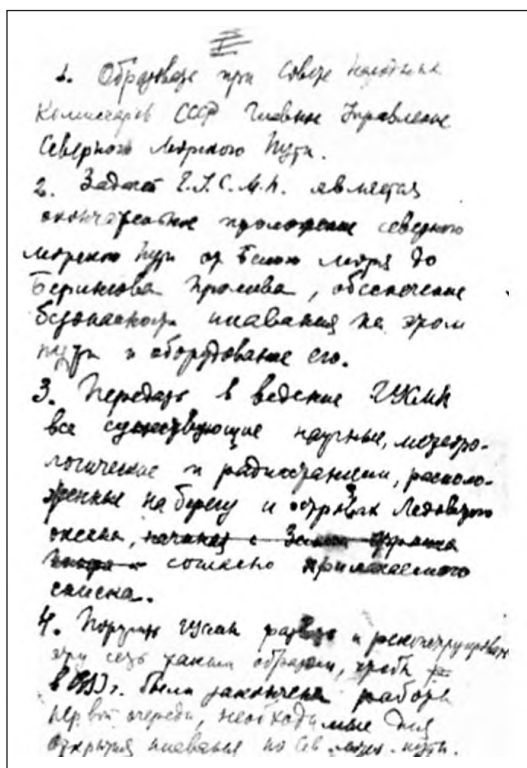 I
1. Образовать при Совете Народных
Комиссаров СССР Главное Управление
Северного Морского Пути.
2. Задачей Г.У.С.М.П. является
окончательное проложение северного
морского пути от Белого моря до
Берингова Пролива, обеспечение
безопасности плавания на этом
пути и оборудование его.
3. Передать в ведение ГУСМП
все существующие научные, метеоро-
логические и радиостанции, располо-
женные на берегу и островах Ледовитого
океана, начиная с
согласно прилагаемого
списка.
4. Поручить ГУСМП развить и реконструировать
эту сеть таким образом, чтобы
в 1933 г. были закончены работы
первой очереди, необходимые для
открытия плавания по Сев. морск. пути.